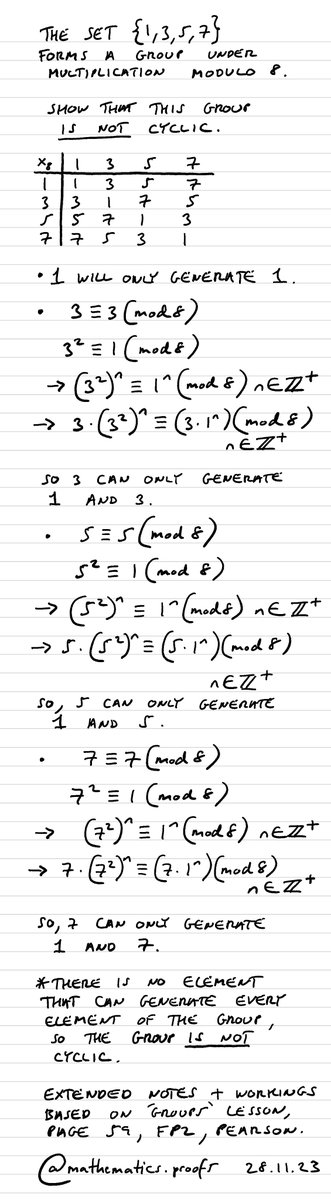 THE SET {1,3,5,7}
FORMS A GROUP UNDER
MULTIPLICATION MODULO 8.
SHOW THAT THIS GROUP
IS NOT CYCLIC.
×₈ 1 3 5 7
1 1 3 5 7
3 3 1 7 5
5 5 7 1 3
7 7 5 3 1
• 1 WILL ONLY GENERATE 1.
• 3 ≡ 3 (mod 8)
3² ≡ 1 (mod 8)
→ (3²)ⁿ ≡ 1ⁿ (mod 8) n∈ℤ⁺
→ 3·(3²)ⁿ ≡ (3·1ⁿ)(mod 8)
n∈ℤ⁺
SO 3 CAN ONLY GENERATE
1 AND 3.
• 5 ≡ 5 (mod 8)
5² ≡ 1 (mod 8)
→ (5²)ⁿ ≡ 1ⁿ (mod 8) n∈ℤ⁺
→ 5·(5²)ⁿ ≡ (5·1ⁿ)(mod 8)
n∈ℤ⁺
SO, 5 CAN ONLY GENERATE
1 AND 5.
• 7 ≡ 7 (mod 8)
7² ≡ 1 (mod 8)
→ (7²)ⁿ ≡ 1ⁿ (mod 8) n∈ℤ⁺
→ 7·(7²)ⁿ ≡ (7·1ⁿ)(mod 8)
n∈ℤ⁺
SO, 7 CAN ONLY GENERATE
1 AND 7.
*THERE IS NO ELEMENT
THAT CAN GENERATE EVERY
ELEMENT OF THE GROUP,
SO THE GROUP IS NOT
CYCLIC.
EXTENDED NOTES + WORKINGS
BASED ON 'GROUPS' LESSON,
PAGE 59, FP2, PEARSON.
@mathematics.proofs 28.11.23